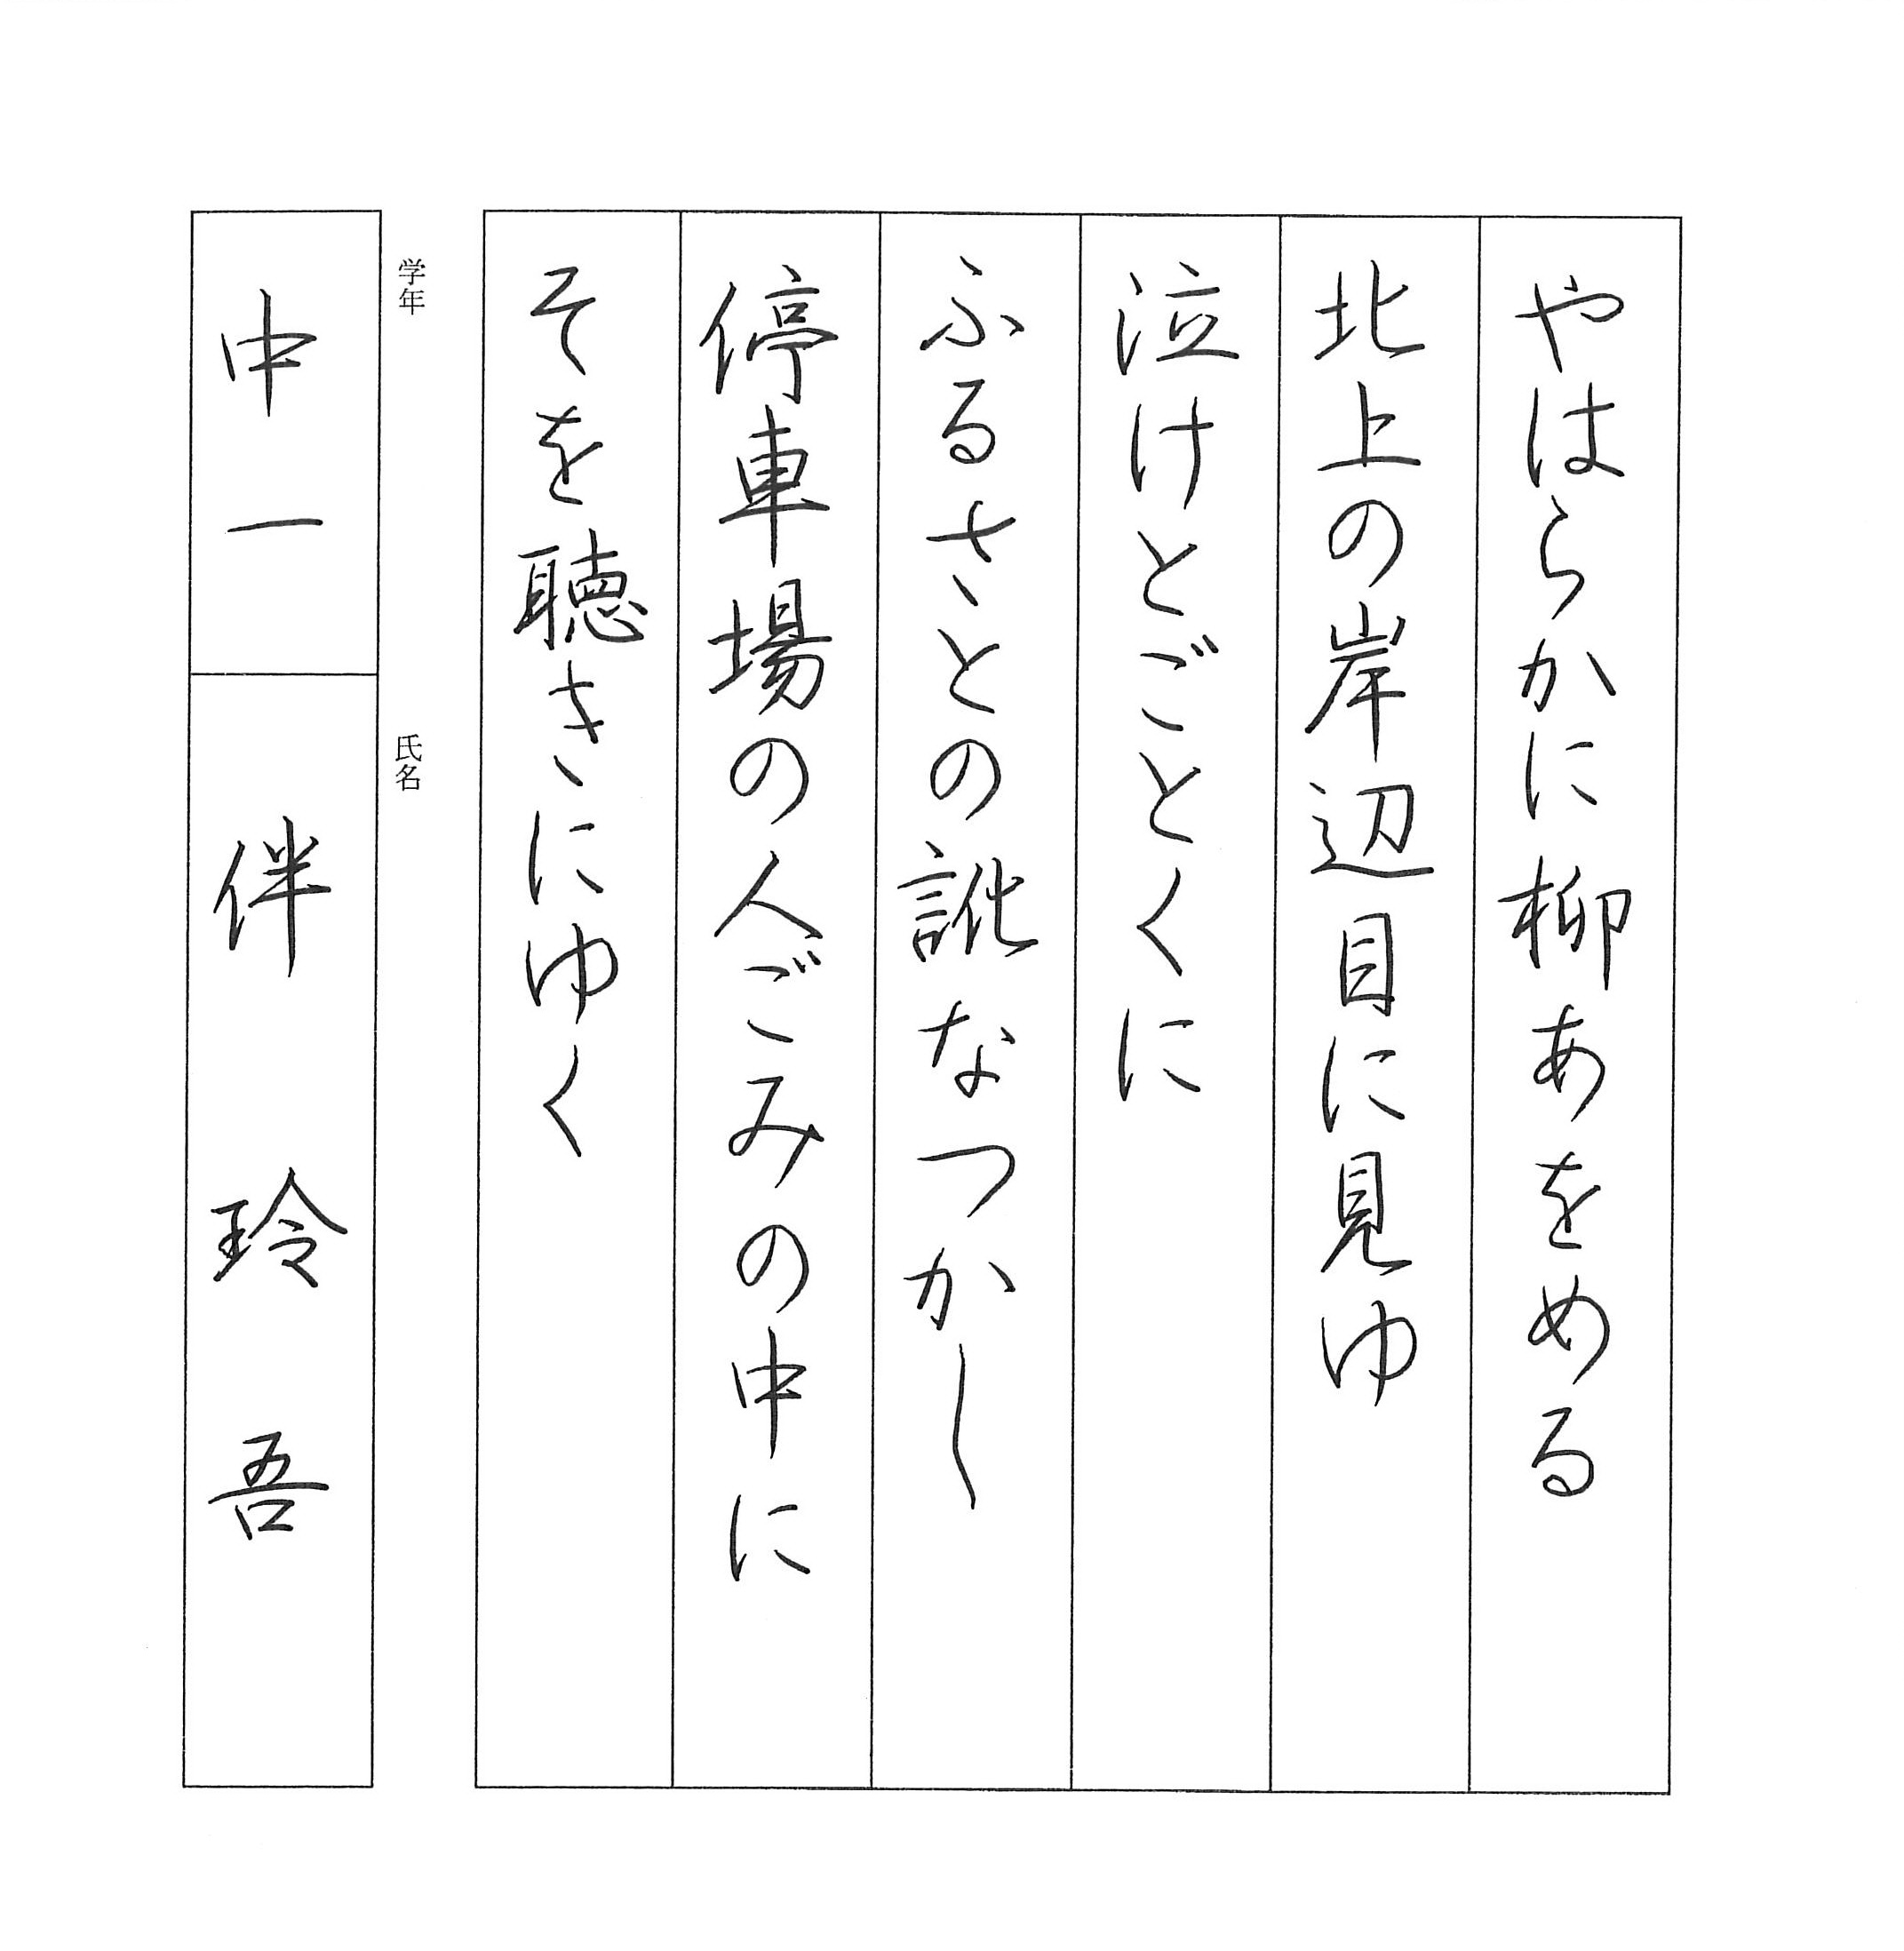 やはらかに柳あをめる
北上の岸辺目に見ゆ
泣けとごとくに
ふるさとの訛なつかし
停車場の人ごみの中に
そを聴きにゆく
学年
中一
氏名
伴玲吾